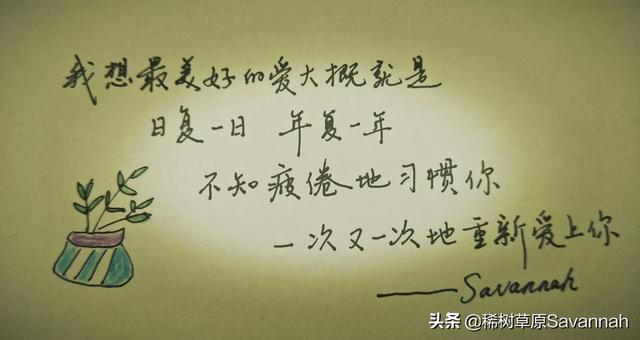 我想最美好的爱大概就是
日复一日 年复一年
不知疲倦地习惯你
一次又一次地重新爱上你
——Savannah
头条 @稀树草原Savannah